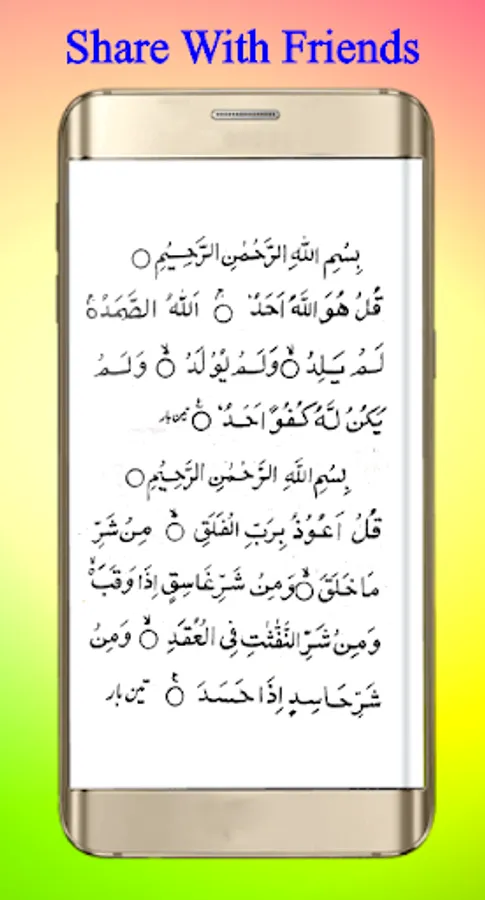 Share With Friends
بِسْمِ اللّٰهِ الرَّحْمٰنِ الرَّحِيْمِ ○
قُلْ هُوَ اللّٰهُ اَحَدٌ ۚ○ اَللّٰهُ الصَّمَدُ ۚ○
لَمْ يَلِدْ ۙ○ وَلَمْ يُوْلَدْ ۙ○ وَلَمْ
يَكُنْ لَّهٗ كُفُوًا اَحَدٌ ۧ○ تین بار
بِسْمِ اللّٰهِ الرَّحْمٰنِ الرَّحِيْمِ ○
قُلْ اَعُوْذُ بِرَبِّ الْفَلَقِ ۙ○ مِنْ شَرِّ
مَا خَلَقَ ۙ○ وَمِنْ شَرِّ غَاسِقٍ اِذَا وَقَبَ ۙ○
وَمِنْ شَرِّ النَّفّٰثٰتِ فِى الْعُقَدِ ۙ○ وَمِنْ
شَرِّ حَاسِدٍ اِذَا حَسَدَ ۧ○ تین بار